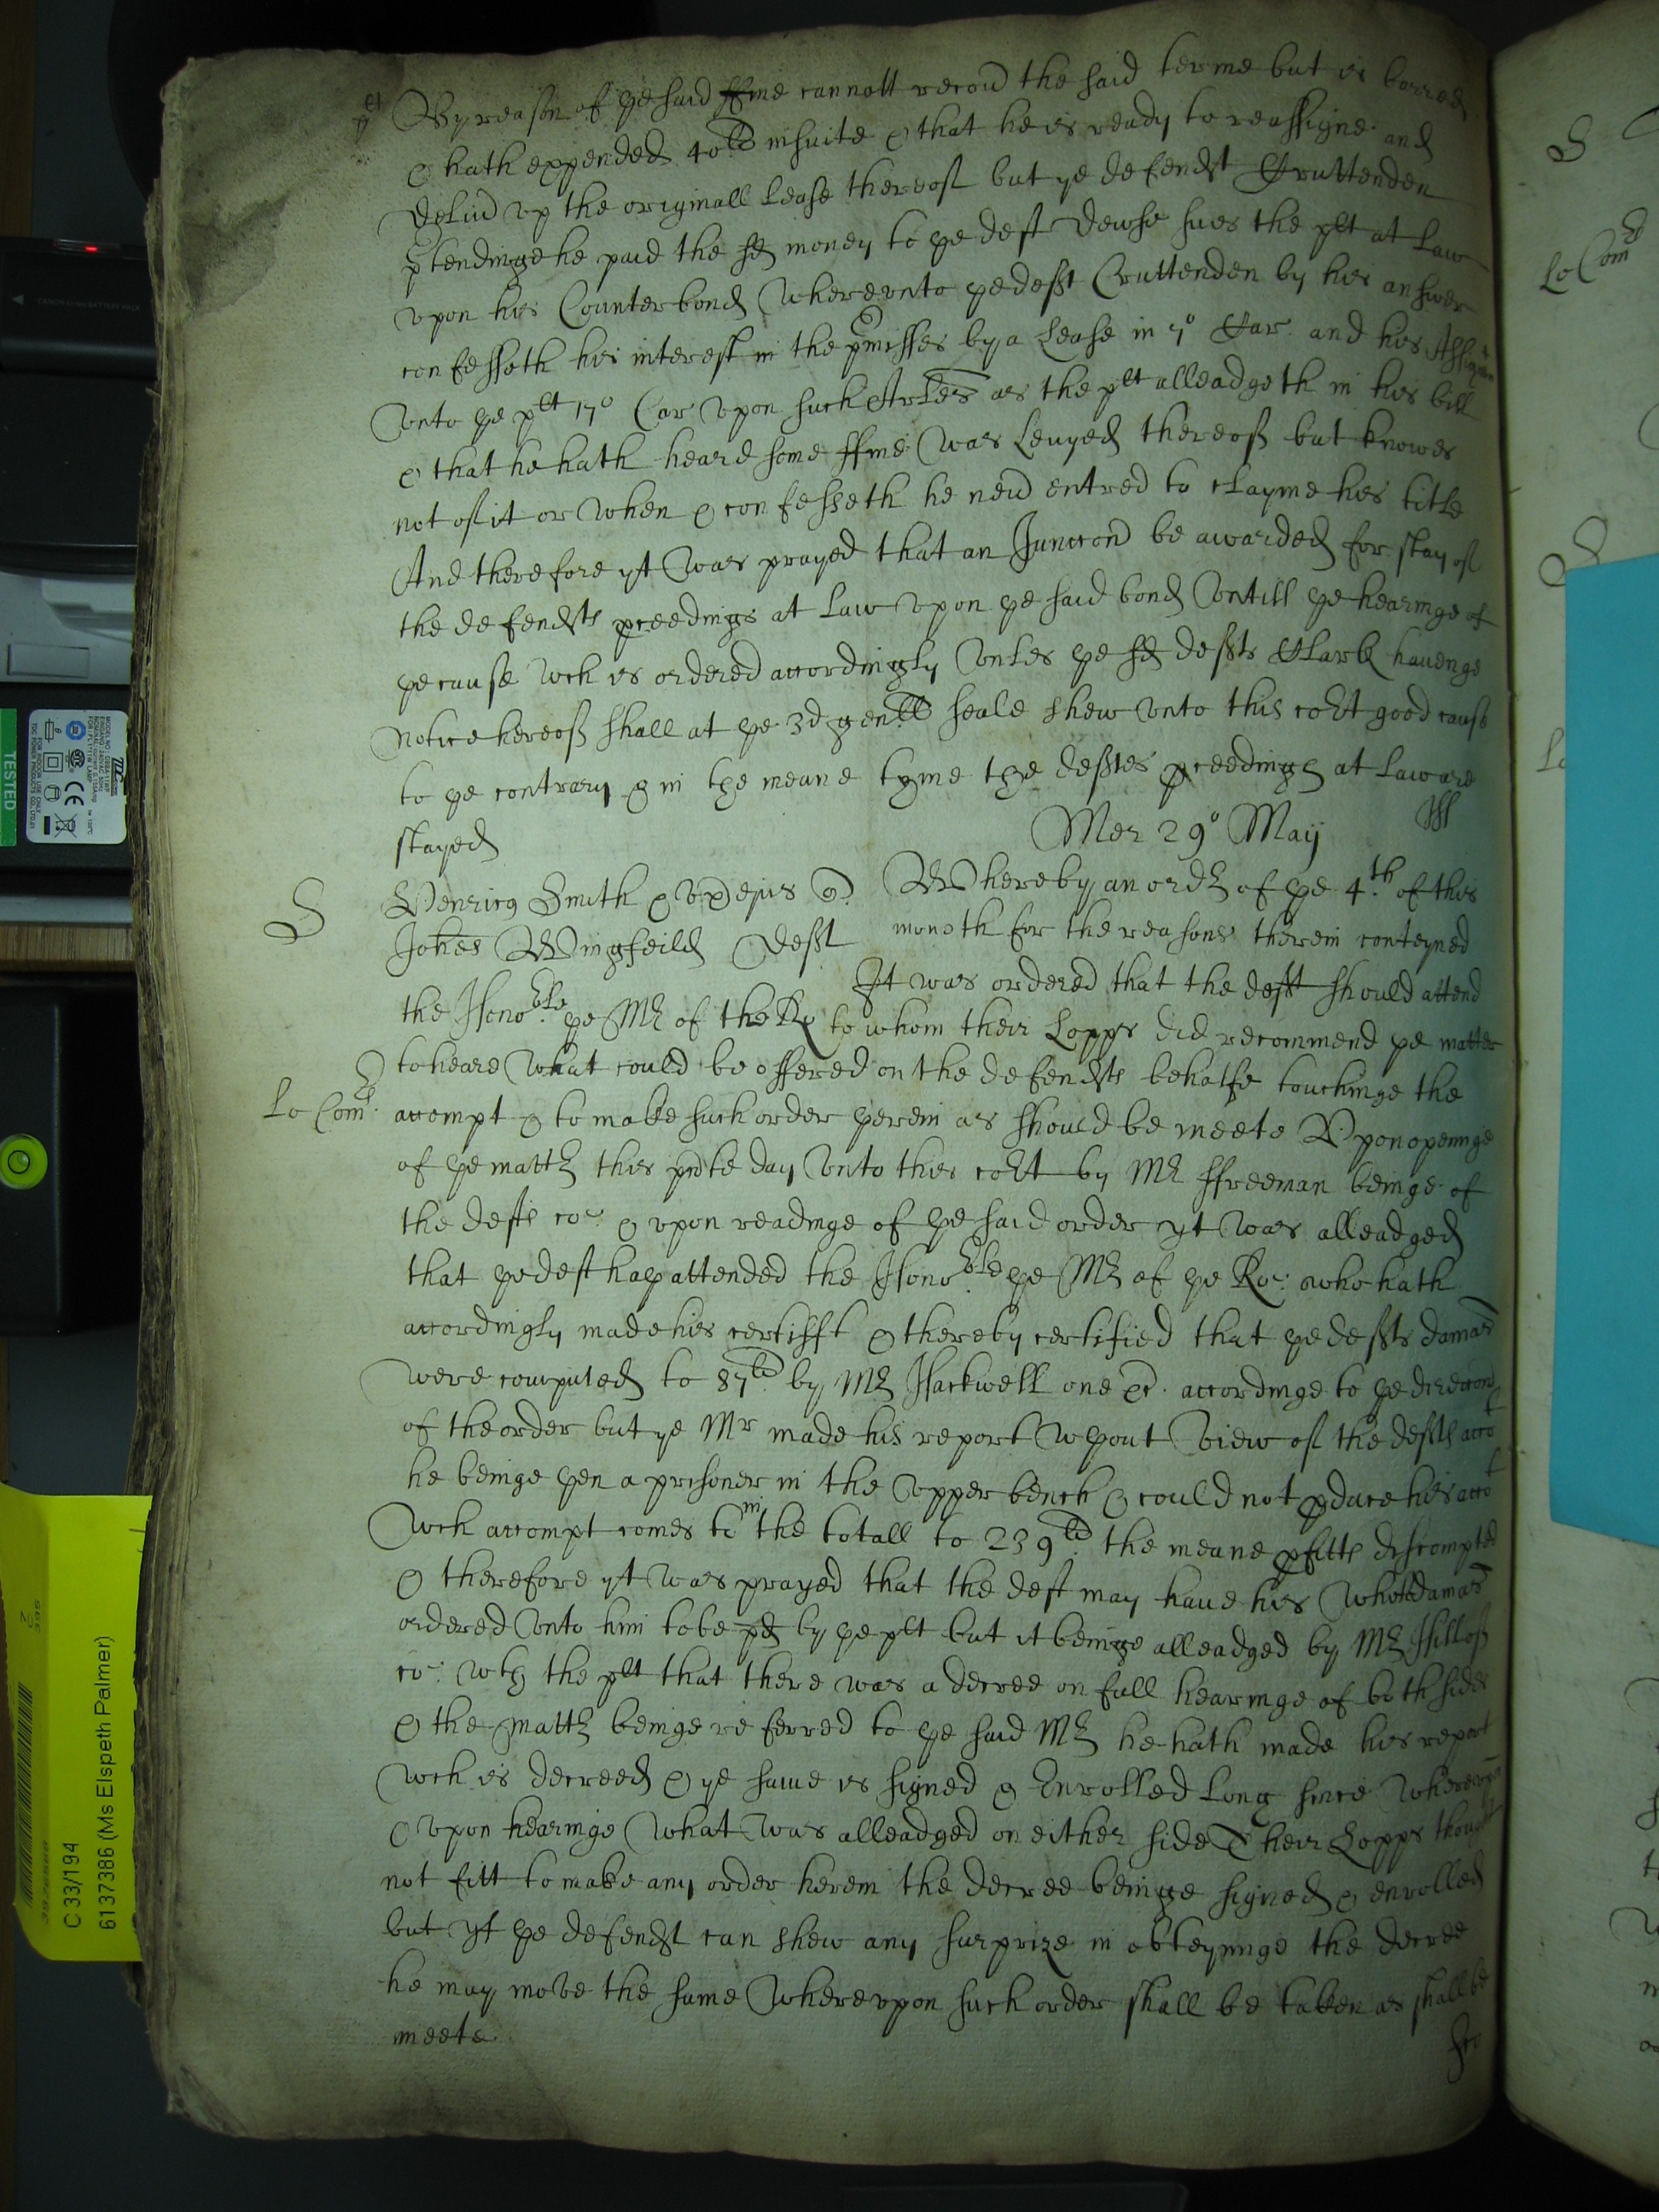 By reason of ye said ffine cannott recou the said terme but is barred
& hath expended 40li in suite & that he is ready to reassigne and
deliu vp the originall Lease thereof but ye defendt Cruttenden
ptendinge he paid the sd money to ye deft Dewse sues the plt at Law
vpon his Counterbond Wherevnto ye deft Cruttenden by his answer
confesseth his interest in the pmisses by a Lease in 7o Car and his
vnto ye plt 17o Car vpon such Artles as the plt alleadgeth in his bill
& that he hath heard some ffine was Leuyed thereof but knowes
not of it or when & confesseth he neu entred to clayme his title
And therefore yt was prayed that an Junccon be awarded for stay of
the defendts pceedings at Law vpon ye said bond vntill ye hearinge of
ye cause wch is ordered accordingly vnles ye sd defts Clark hauenge
notice hereof shall at ye 3d genll seale shew vnto this cort good cause
to ye contrary & in the meane tyme the deftes pceedings at Law are
stayed
Mer 29o Maij
S Henricus Smith & vx ejus Whereby an ordr of ye 4th of this
Johes Wingfeild Deft moneth for the reasons therein conteyned
It was ordered that the deft should attend
the Honoble ye Mr of the Ro to whom their Lopps did recommend ye matter
to heare what could be offered on the defendts behalfe touchinge the
Lo Comrs accompt & to make such order yerein as should be meete Vpon openinge
of ye mattr this pnte day vnto this cort by Mr ffreeman beinge of
the defts co: & vpon readinge of ye said order yt was alleadged
that ye deft hath attended the Honoble ye Mr of ye Ro: who hath
accordingly made his certifft & thereby certified that ye defts damas
were computed to 87li by Mr Hackwell one &c. accordinge to ye direccon
of the order but ye Mr made his report wthout view of the defts acco
he beinge yen a prisoner in the vpper bench & could not pduce his acco
wch accompt comes to in the totall to 239li the meane pfitts discompted
& therefore yt was prayed that the deft may haue his whole damas
ordered vnto him to be pd by ye plt but it beinge alleadged by Mr
co: wth the plt that there was a decree on full hearinge of both sides
& the mattr beinge referred to ye said Mr he hath made his report
wch is decreed & ye same is signed & Enrolled Long since wherevpon
& vpon hearinge what was alleadged on either side Their Lopps thought
not fitt to make any order herein the decree beinge signed & enrolled
but yf ye defendt can shew any surprize in obteyninge the decree
he may move the same wherevpon such order shall be taken as shall be
meete
TESTED
CANON
C 33/194
6137386 (Ms Elspeth Palmer)
S
Lo Comrs